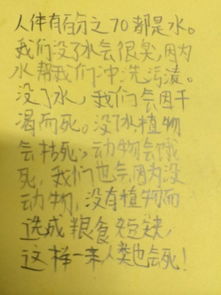 人体有百分之70都是水。
我们没了水会很臭,因为
水帮我们冲洗污渍。
没了水,我们会因干
渴而死。没了水植物
会枯死,动物会饿
死,我们也会因为没
动物,没有植物而
造成粮食短缺,
这样一来人类也会死!